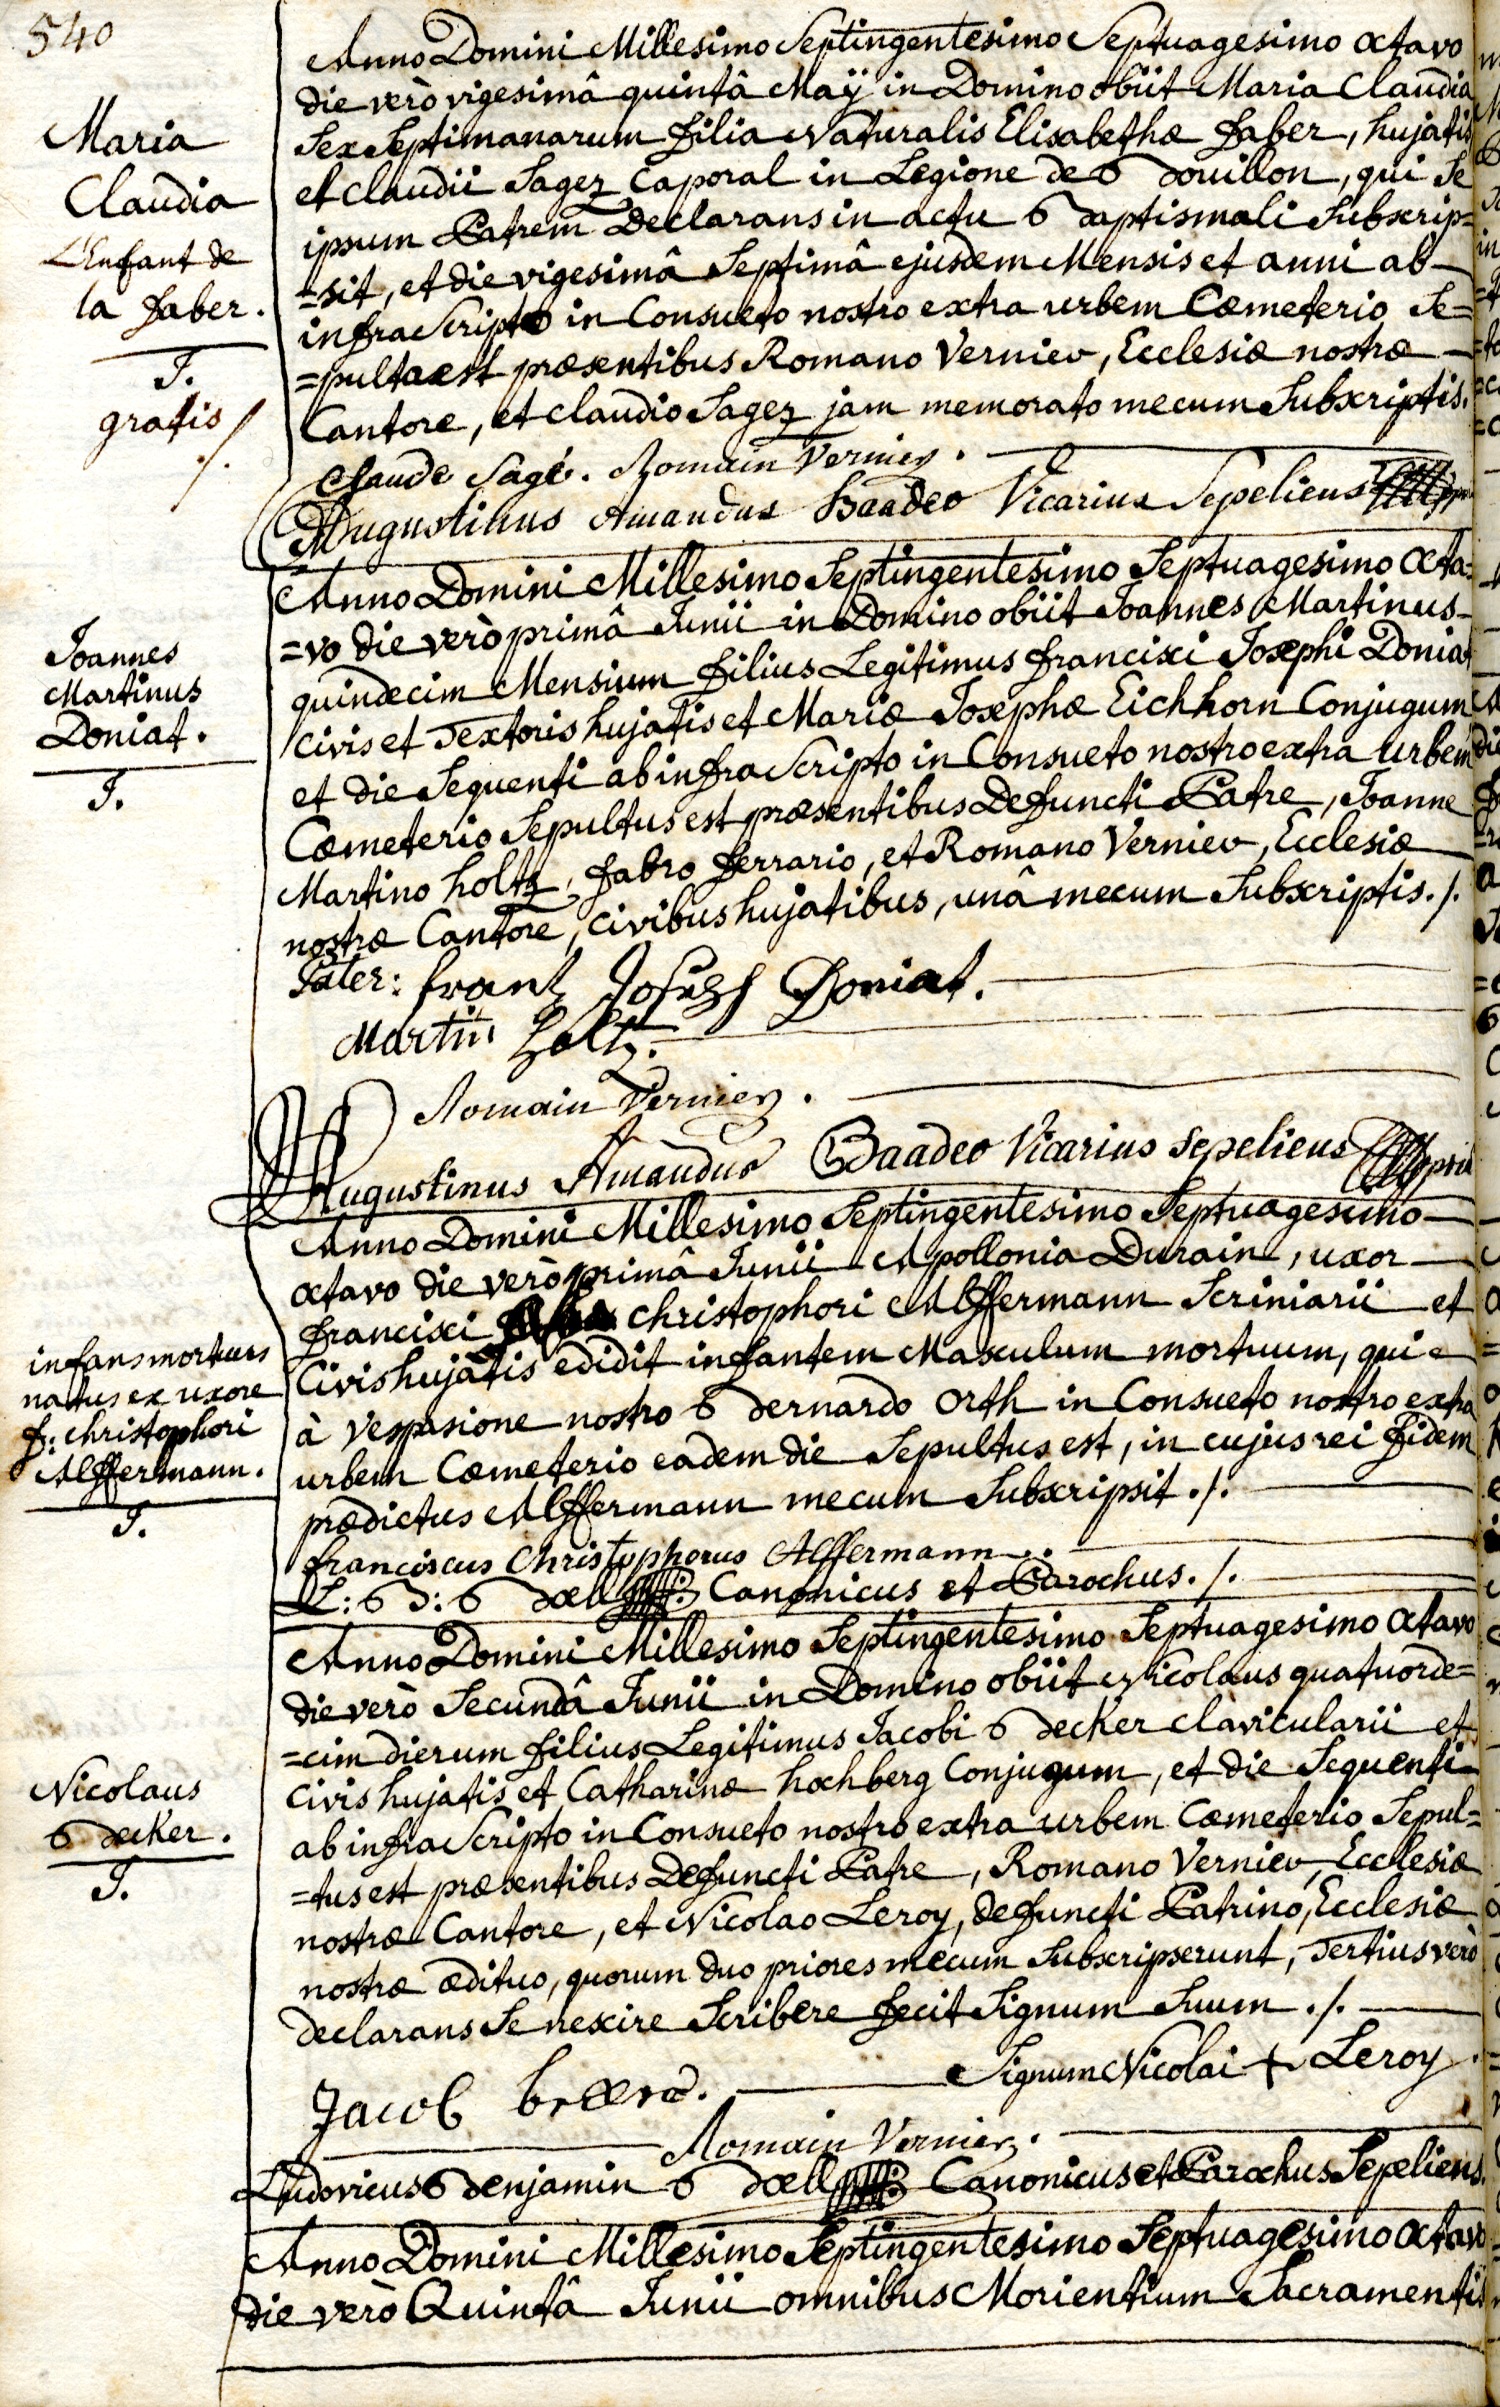 540
Maria
Claudia
L'Enfant de
la faber.
J.
gratis
./.
Anno Domini Millesimo Septingentesimo Septuagesimo octavo
die verò vigesimâ quintâ Maÿ in Domino obiit Maria Claudia
Sex Septimanarum filia Naturalis Elisabethæ faber, hujatis
et claudii Sagez Caporal in Legione de Bouillon, qui Se
ipsum Patrem Declarans in actu Baptismali Subscrip=
=sit, et die vigesimâ Septimâ ejusdem Mensis et anni ab
infra Scripto in Consueto nostro extra urbem Cœmeterio Se=
=pulta est præsentibus Romano Vernier, Ecclesiæ nostræ
Cantore, et claudio Sagez jam memorato mecum Subscriptis.
Claude Sagé. Romain Vernier.
Augustinus Amandus Baader Vicarius Sepeliens
Joannes
Martinus
Doniat.
J.
Anno Domini Millesimo Septingentesimo Septuagesimo octa=
=vo die verò primâ Junii in Domino obiit Joannes Martinus
quindecim Mensium filius Legitimus francisci Josephi Doniat
civis et Textoris hujatis et Mariæ Josephæ Eichhorn Conjugum
et die Sequenti ab infra Scripto in Consueto nostro extra urbem
Cœmeterio Sepultus est præsentibus Defuncti Patre, Joanne
Martino holtz, fabro ferrario, et Romano Vernier, Ecclesiæ
nostræ Cantore, civibus hujatibus, unâ mecum Subscriptis. /.
Pater: frantz Joseph Doniat.
Martin Holtz.
Romain Vernier.
Augustinus Amandus Baader Vicarius Sepeliens
infans mortuus
natus ex uxore
f: christophori
Alffermann.
J.
Anno Domini Millesimo Septingentesimo Septuagesimo
octavo die verò primâ Junii Apollonia Durain, uxor
francisci christophori Alffermann Scriniarii et
Civis hujatis edidit infantem Masculum mortuum, qui
à Vespasione nostro Bernardo Orth in Consueto nostro extra
urbem Cœmeterio eadem die Sepultus est, in cujus rei fidem
prædictus Alffermann mecum Subscripsit ./.
franciscus Christophorus Alffermann.
L: B: Bœll Canonicus et Parochus. /.
Nicolaus
Becker.
J.
Anno Domini Millesimo Septingentesimo Septuagesimo octavo
die verò Secundâ Junii in Domino obiit Nicolaus quatuorde=
=cim dierum filius Legitimus Jacobi Becker clavicularii et
civis hujatis et Catharinæ hochberg Conjugum, et die Sequenti
ab infra Scripto in Consueto nostro extra urbem Cœmeterio Sepul=
=tus est præsentibus Defuncti Patre, Romano Vernier, Ecclesiæ
nostræ Cantore, et Nicolao Leroy, defuncti Patrino, Ecclesiæ
nostræ ædituo, quorum duo priores mecum Subscripserunt, Tertius verò
declarans Se nescire Scribere fecit Signum Suum ./.
Signum Nicolai + Leroy.
Jacob
Romain Vernier.
Ludovicus Benjamin Bœll Canonicus et Parochus Sepeliens.
Anno Domini Millesimo Septingentesimo Septuagesimo octavo
die verò Quintâ Junii omnibus Morientium Sacramentis